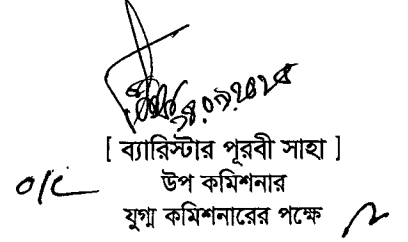 [ ব্যারিস্টার পূরবী সাহা ]
উপ কমিশনার
o/c
যুগ্ম কমিশনারের পক্ষে